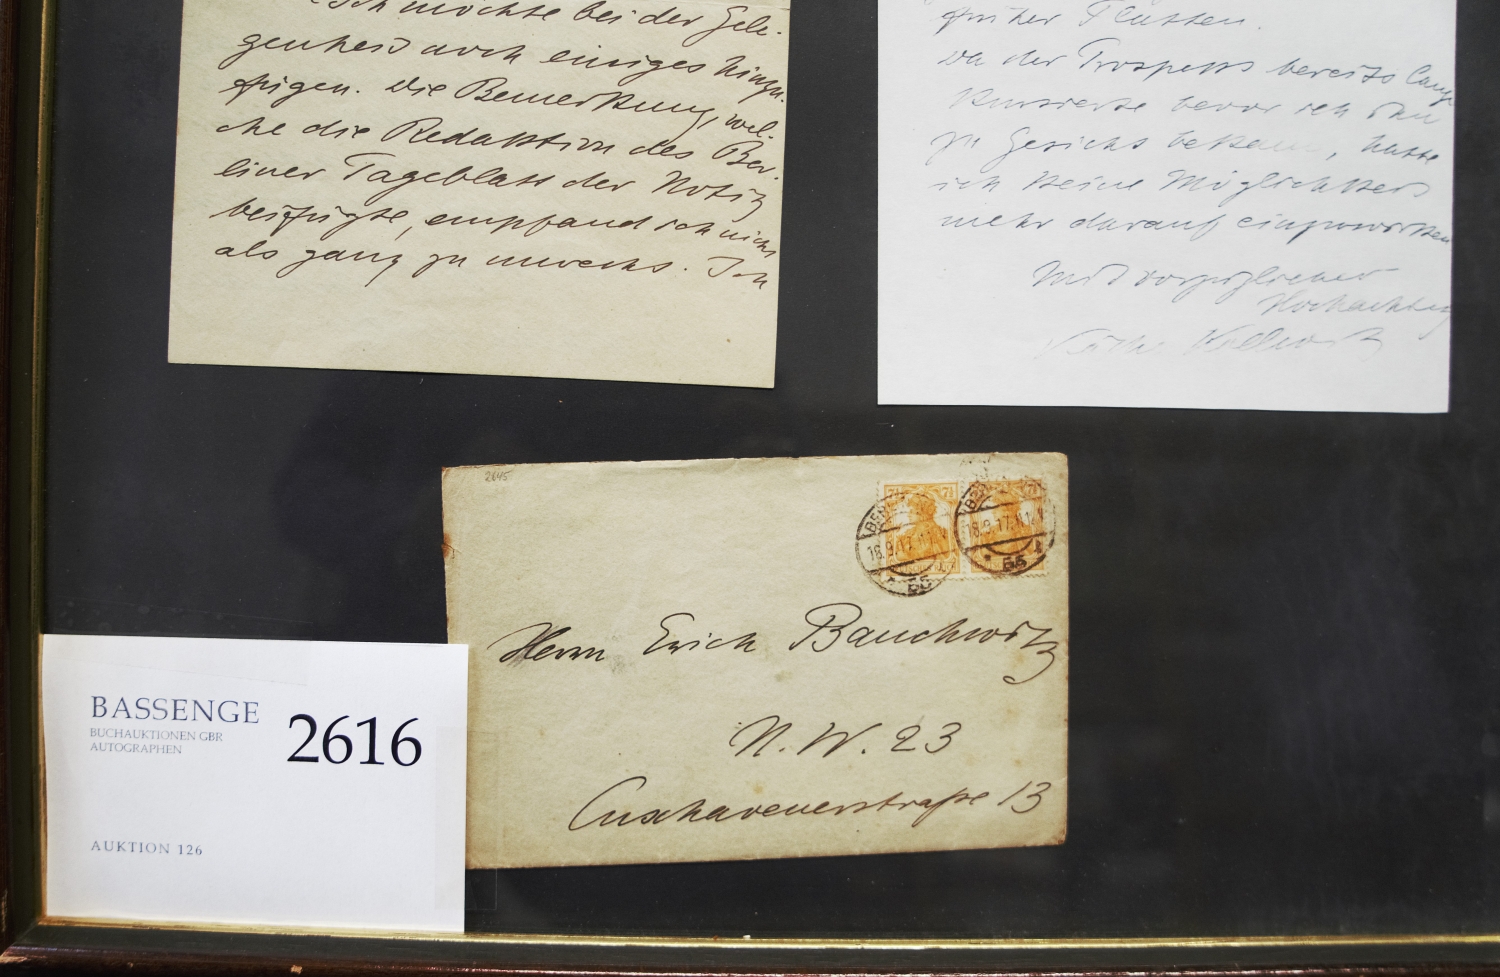 Ich möchte bei der Gele-
genheid auch einiges hinzu-
fügen. Die Bemerkung, wel-
che die Redaktion des Ber-
liner Tageblatt der Notiz
beifügte, empfand ich nicht
als ganz zu unrecht. Ich
früher Platten.
Da der Prospekt bereits lange
kursierte bevor ich ihn
zu Gesicht bekam, hatte
ich keine Möglichkeit
mehr darauf einzuwirken
Mit vorzüglicher
Hochachtung
Käthe Kollwitz
2645
7½ 7½
18.9.17.
18.9.17.
55
Herrn Erich Bauchwitz
N.W. 23
Cuxhavenerstraße 13
BASSENGE
BUCHAUKTIONEN GBR
AUTOGRAPHEN
2616
AUKTION 126